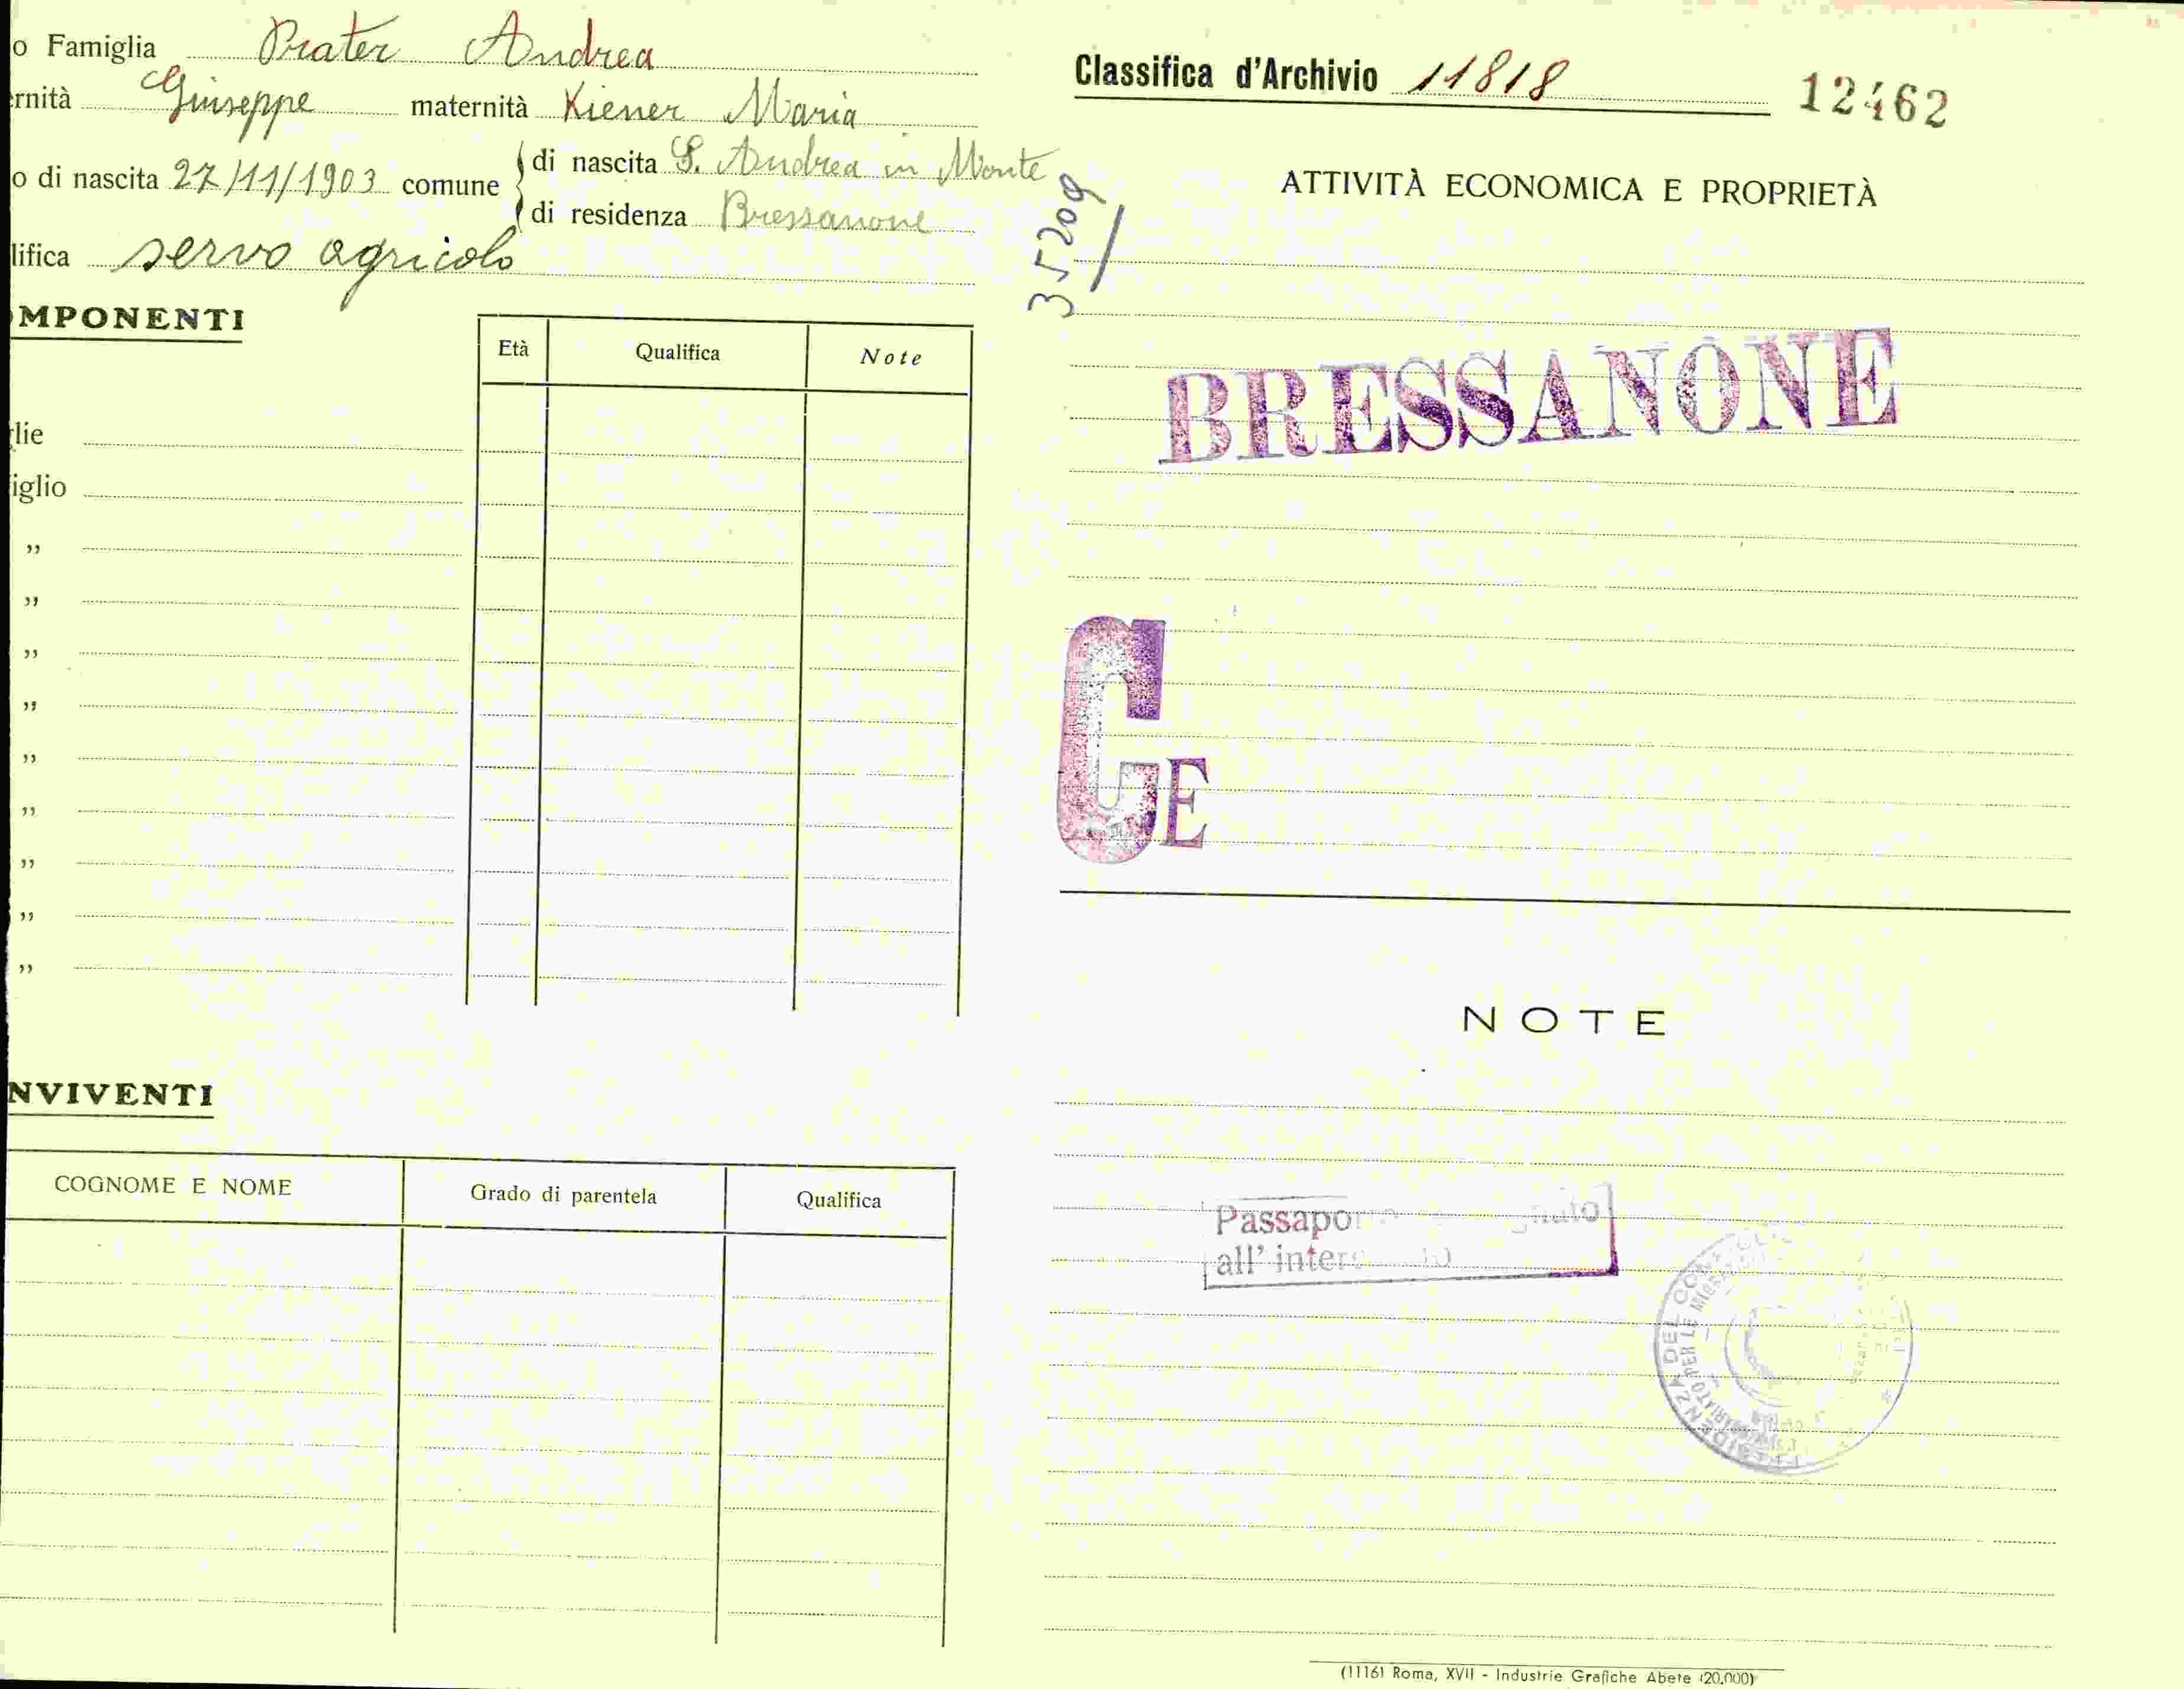 o Famiglia Prater Andrea
rnità Giuseppe maternità Kiener Maria
o di nascita 27/11/1903 comune di nascita S. Andrea in Monte
di residenza Bressanone
lifica servo agricolo
MPONENTI
Età Qualifica Note
lie
iglio
"
"
"
"
"
"
"
"
"
NVIVENTI
COGNOME E NOME Grado di parentela Qualifica
Classifica d'Archivio 11818 12462
35209
ATTIVITÀ ECONOMICA E PROPRIETÀ
BRESSANONE
GE
NOTE
Passapo
all' inter
DEL CON
PER LE
(1116) Roma, XVII - Industrie Grafiche Abete (20.000)